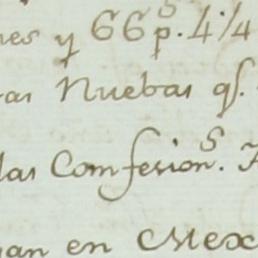 nes y 66 p.s 4 1/4
as Nuebas qs.
las Comfesion.s
an en Mex